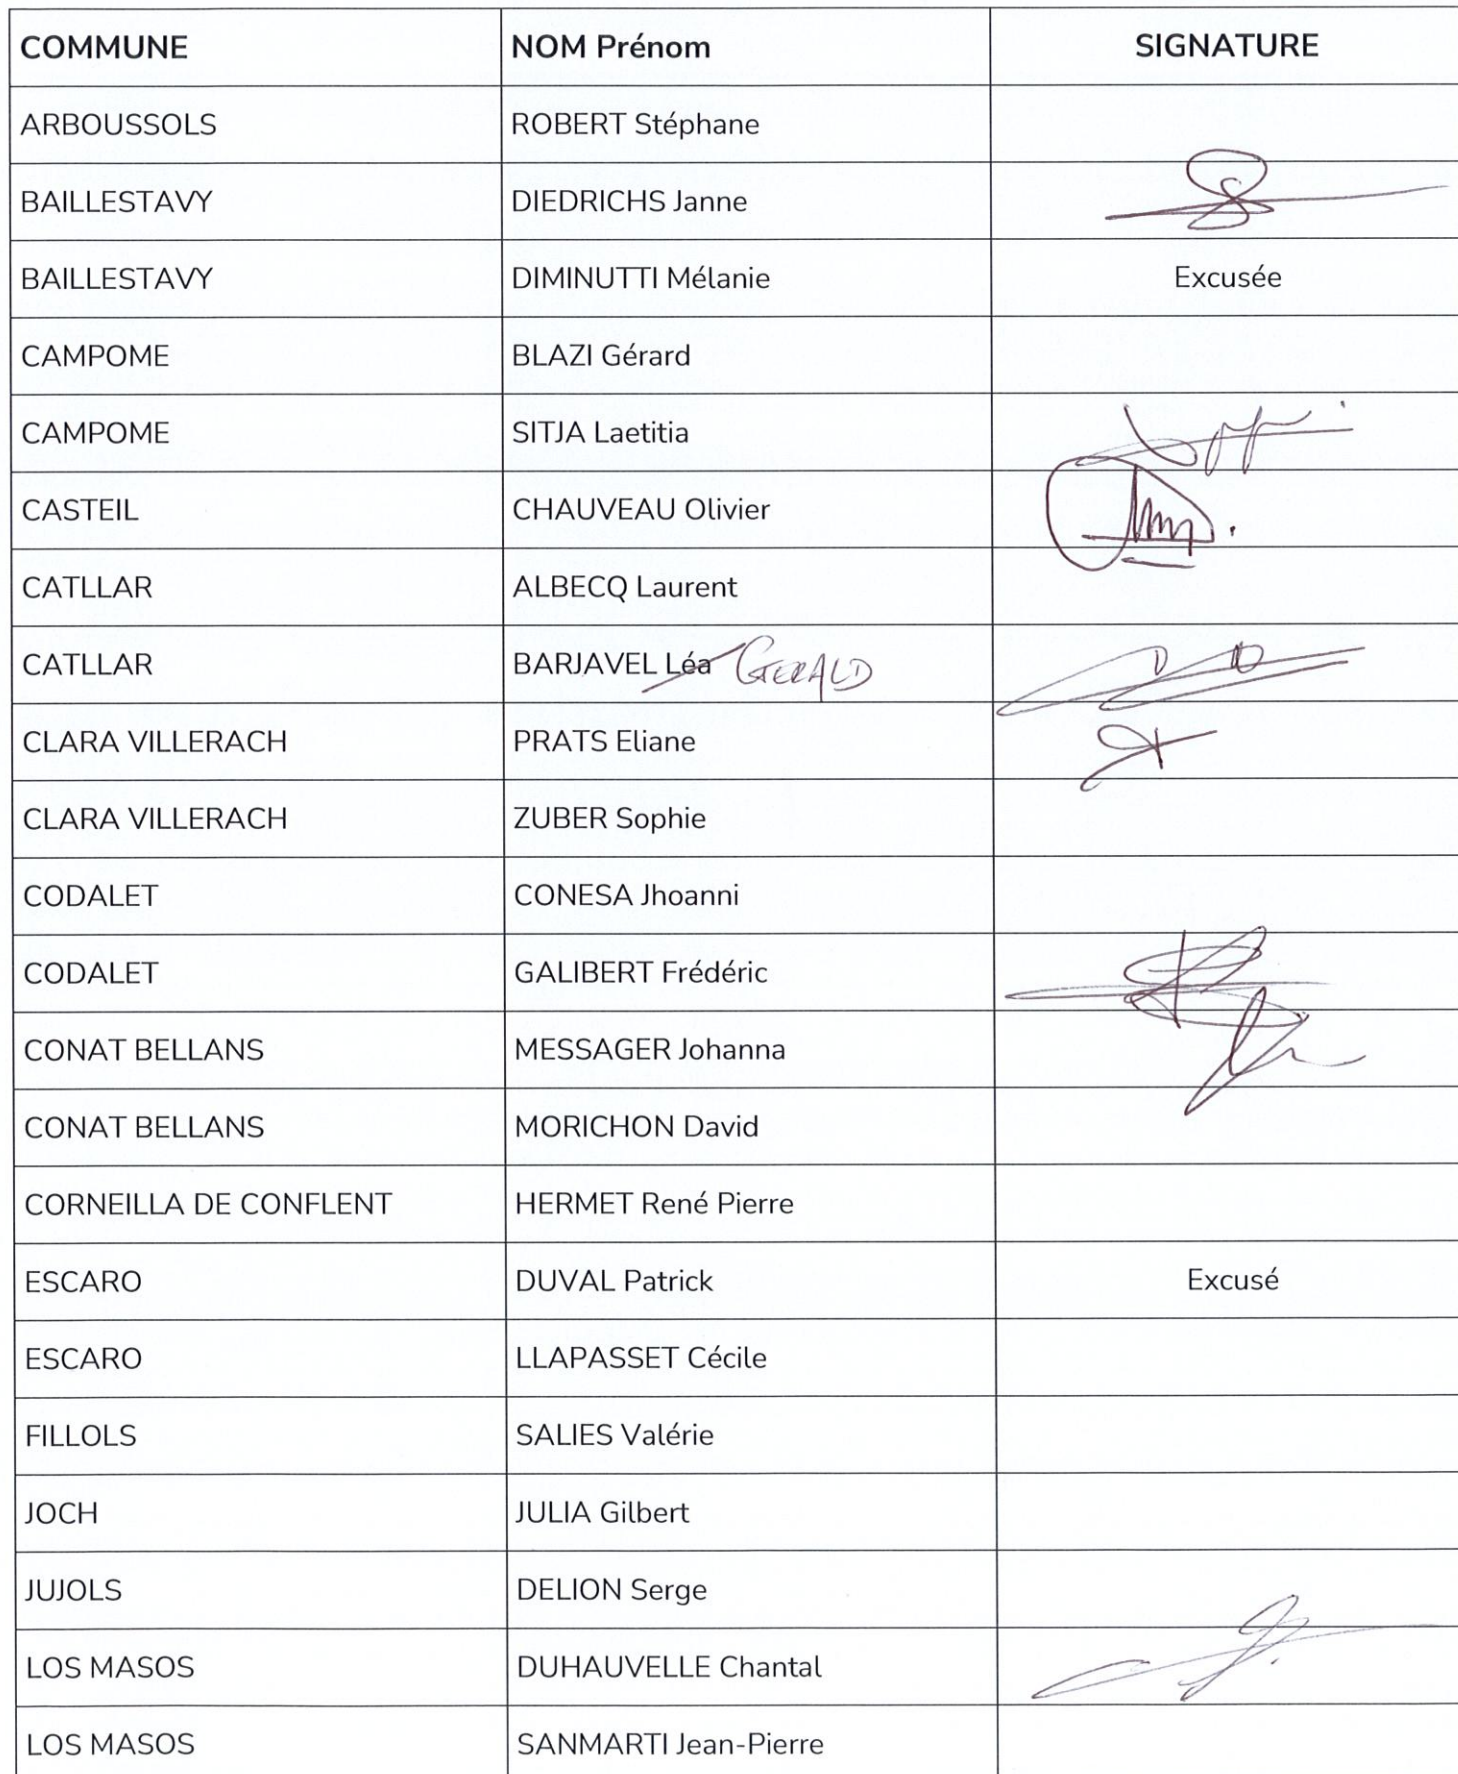 COMMUNE NOM Prénom SIGNATURE
ARBOUSSOLS ROBERT Stéphane
BAILLESTAVY DIEDRICHS Janne
BAILLESTAVY DIMINUTTI Mélanie Excusée
CAMPOME BLAZI Gérard
CAMPOME SITJA Laetitia
CASTEIL CHAUVEAU Olivier
CATLLAR ALBECQ Laurent
CATLLAR BARJAVEL Léa GERALD
CLARA VILLERACH PRATS Eliane
CLARA VILLERACH ZUBER Sophie
CODALET CONESA Jhoanni
CODALET GALIBERT Frédéric
CONAT BELLANS MESSAGER Johanna
CONAT BELLANS MORICHON David
CORNEILLA DE CONFLENT HERMET René Pierre
ESCARO DUVAL Patrick Excusé
ESCARO LLAPASSET Cécile
FILLOLS SALIES Valérie
JOCH JULIA Gilbert
JUJOLS DELION Serge
LOS MASOS DUHAUVELLE Chantal
LOS MASOS SANMARTI Jean-Pierre